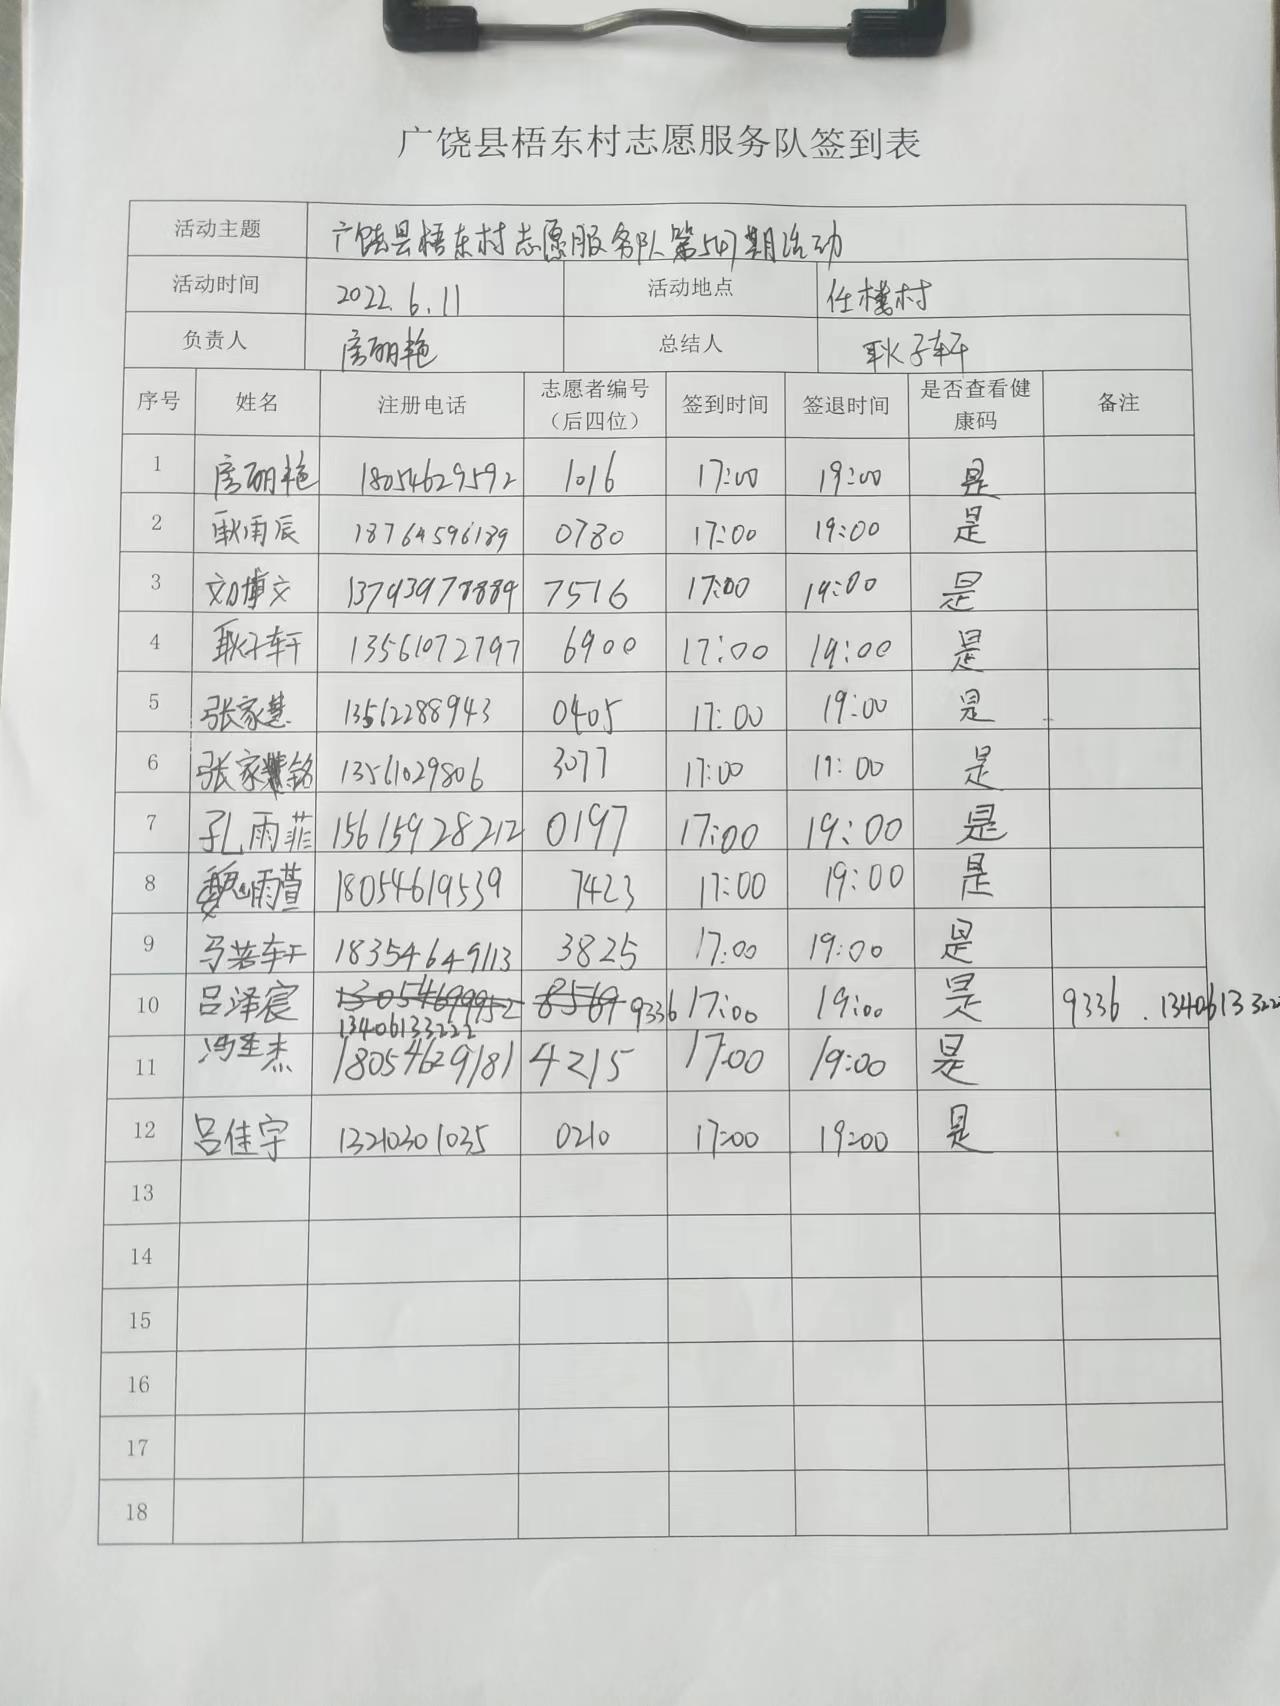 广饶县梧东村志愿服务队签到表
活动主题 广饶县梧东村志愿服务队第547期活动
活动时间 2022.6.11 活动地点 任楼村
负责人 房丽艳 总结人 耿子轩
序号 姓名 注册电话 志愿者编号（后四位） 签到时间 签退时间 是否查看健康码 备注
1 房丽艳 18054629592 1016 17:00 19:00 是
2 耿雨辰 18764596189 0780 17:00 19:00 是
3 刘博文 13793978884 7516 17:00 19:00 是
4 耿子轩 13561072797 6900 17:00 19:00 是
5 张家慧 13562288943 0405 17:00 19:00 是
6 张家铭 13561029806 3077 17:00 19:00 是
7 孔雨菲 15615928212 0197 17:00 19:00 是
8 魏雨萱 18054619539 7423 17:00 19:00 是
9 马若轩 18354649113 3825 17:00 19:00 是
10 吕泽宸 13054699952 8569 9336 17:00 19:00 是 9336 . 13406133222
13406133222
11 冯圣杰 18054629181 4215 17:00 19:00 是
12 吕佳宇 13210301035 0210 17:00 19:00 是
13
14
15
16
17
18